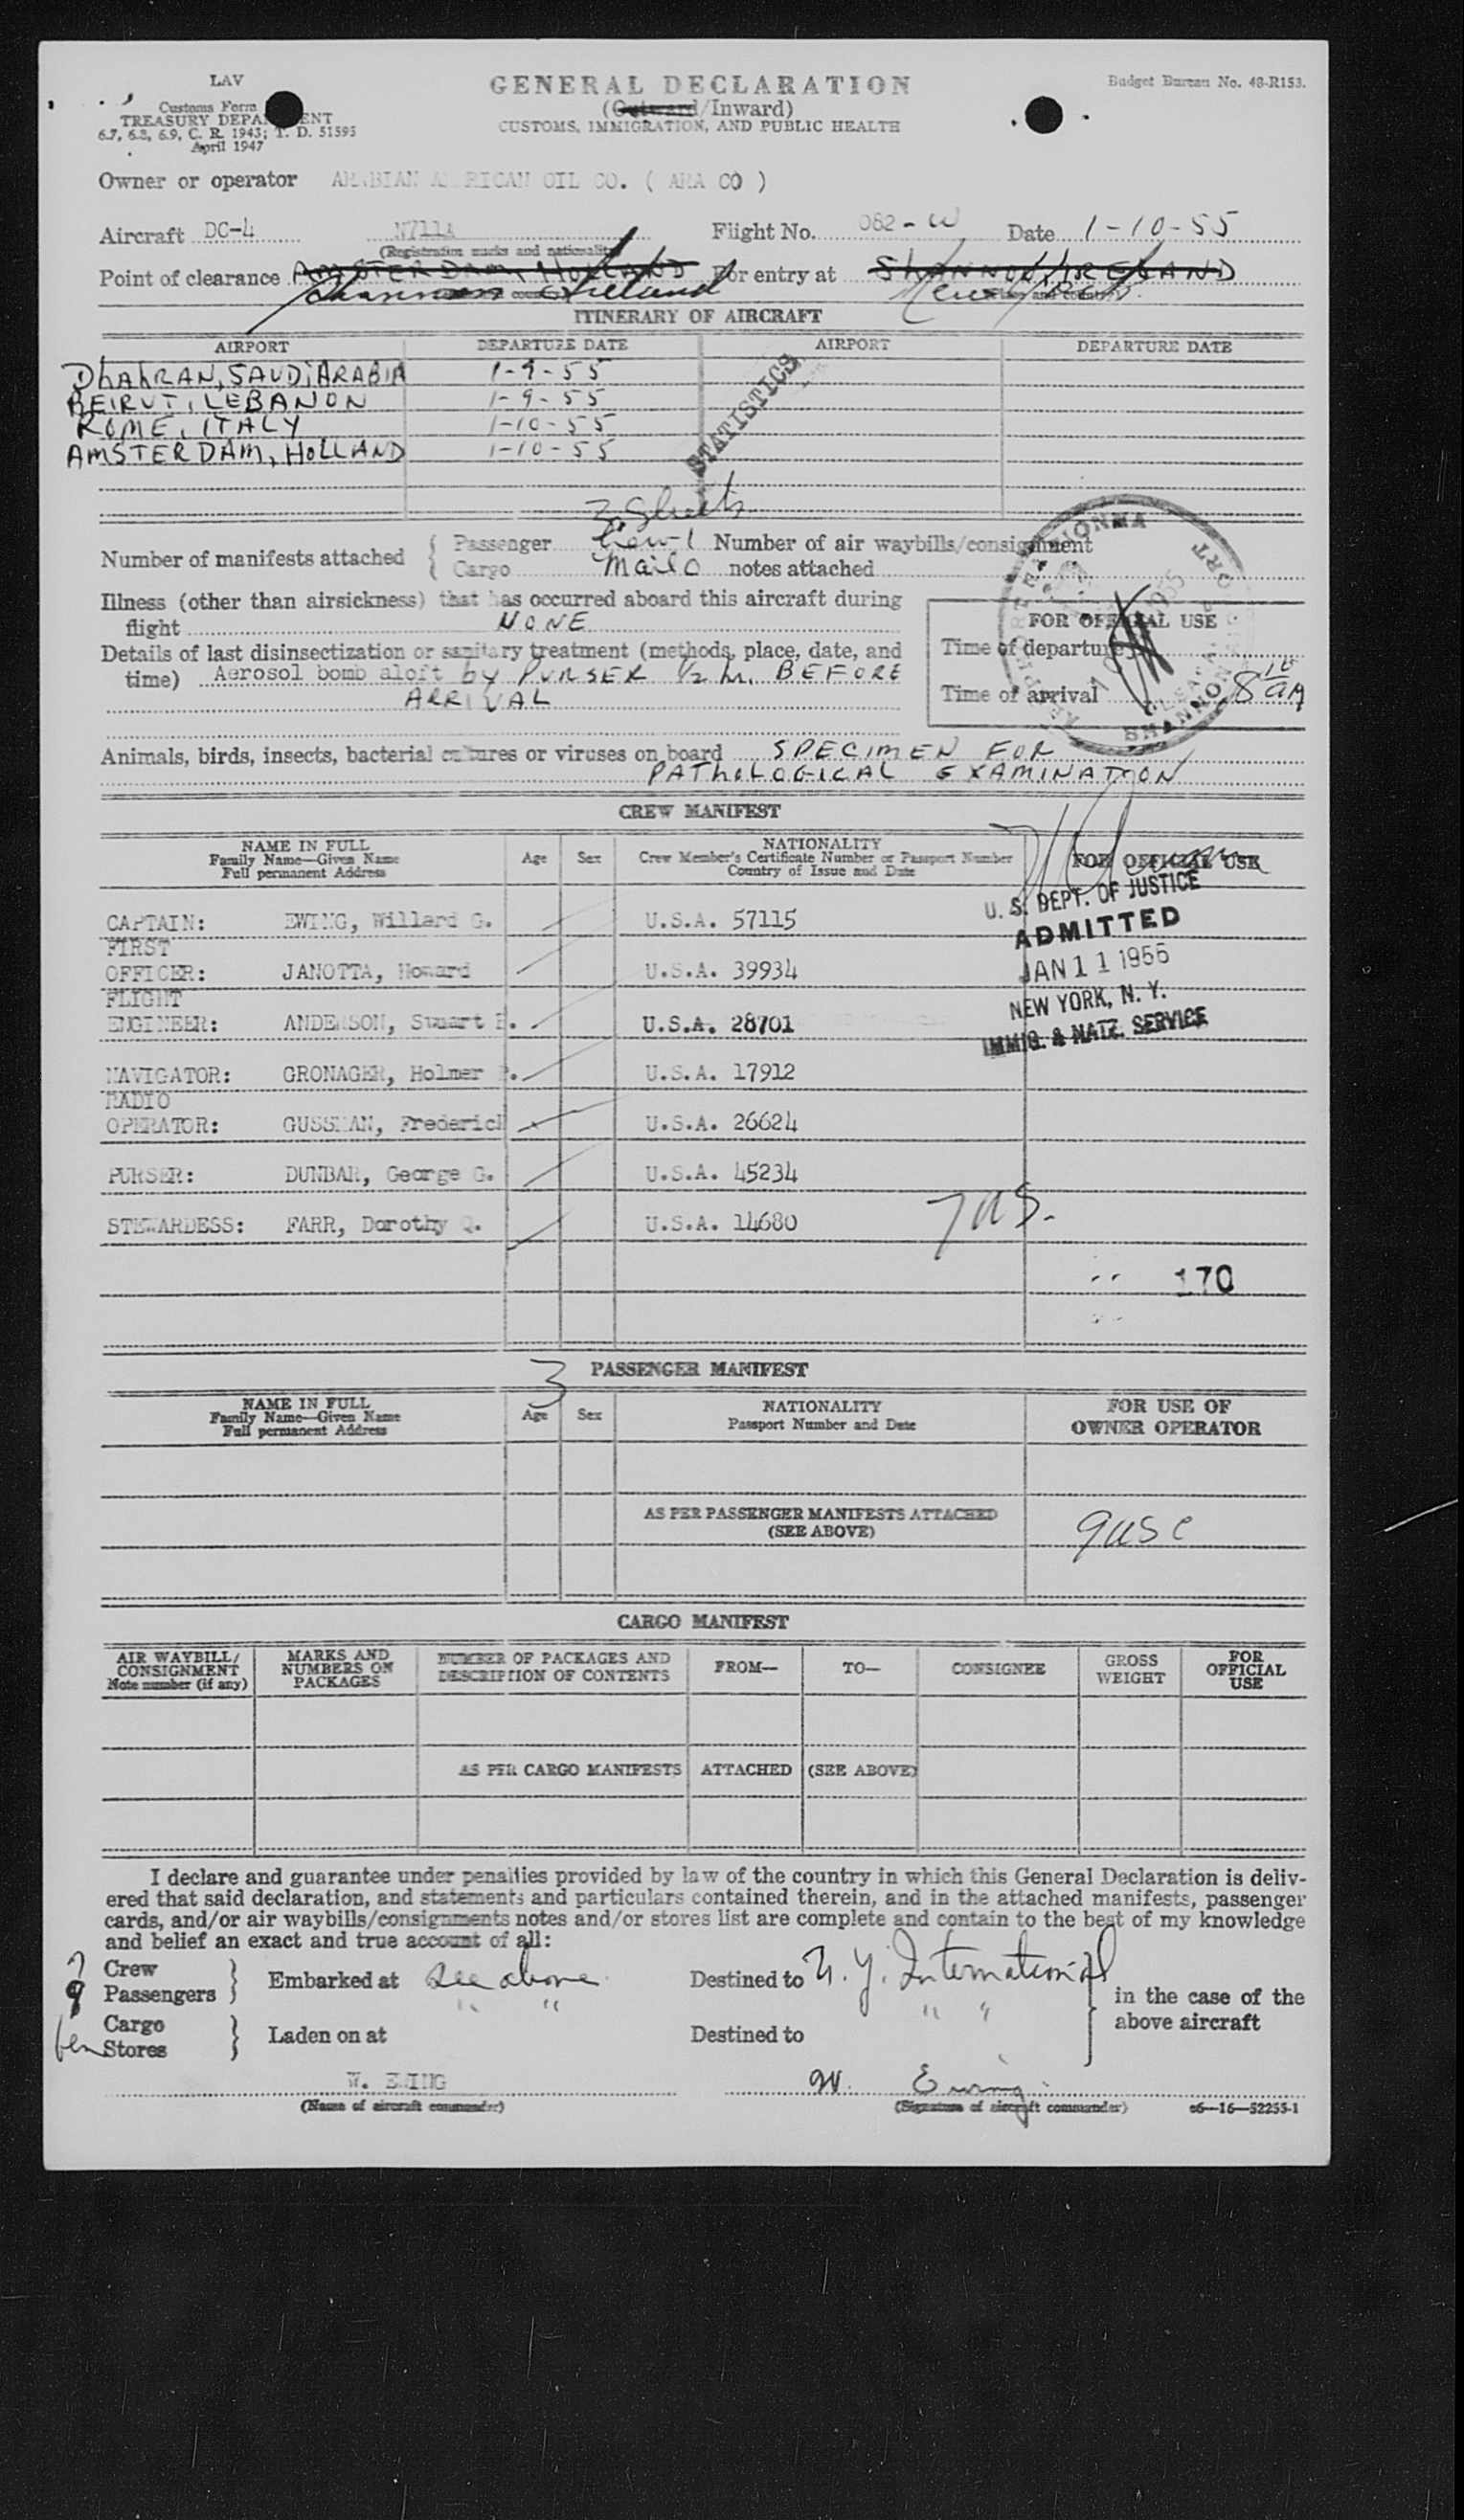 LAV
GENERAL DECLARATION
Budget Bureau No. 48-R153.
Customs Form
(Outward/Inward)
TREASURY DEPARTMENT
CUSTOMS, IMMIGRATION, AND PUBLIC HEALTH
6.7, 6.8, 6.9, C. R. 1943; T. D. 51595
April 1947
Owner or operator ARABIAN AMERICAN OIL CO. ( ARA CO )
Aircraft DC-4 N711A Flight No. 082-W Date 1-10-55
(Registration marks and nationality)
Point of clearance AMSTERDAM, HOLLAND For entry at SHANNON, IRELAND
Shannon Ireland New York
ITINERARY OF AIRCRAFT
AIRPORT DEPARTURE DATE AIRPORT DEPARTURE DATE
DhAhRAN, SAUDI ARABIA 1-9-55
BEIRUT, LEBANON 1-9-55
ROME, ITALY 1-10-55
AMSTERDAM, HOLLAND 1-10-55
STATISTICS
3 Sheets
Number of manifests attached { Passenger Crew-1 Number of air waybills/consignment
Cargo Mail 0 notes attached
Illness (other than airsickness) that has occurred aboard this aircraft during
flight NONE
FOR OFFICIAL USE
Details of last disinsectization or sanitary treatment (methods, place, date, and
time) Aerosol bomb aloft by PURSER 1/2 hr. BEFORE
ARRIVAL
Time of departure
Time of arrival 8 15 AM
SHANNON
Animals, birds, insects, bacterial cultures or viruses on board SPECIMEN FOR
PATHOLOGICAL EXAMINATION
CREW MANIFEST
NAME IN FULL
Family Name—Given Name
Full permanent Address
Age Sex
NATIONALITY
Crew Member's Certificate Number or Passport Number
Country of Issue and Date
FOR OFFICIAL USE
U. S. DEPT. OF JUSTICE
ADMITTED
JAN 11 1955
NEW YORK, N. Y.
IMMIG. & NATZ. SERVICE
CAPTAIN: EWING, Willard G. U.S.A. 57115
FIRST
OFFICER: JANOTTA, Howard U.S.A. 39934
FLIGHT
ENGINEER: ANDERSON, Stuart E. U.S.A. 28701
NAVIGATOR: GRONAGER, Holmer P. U.S.A. 17912
RADIO
OPERATOR: GUSSMAN, Frederick U.S.A. 26624
PURSER: DUNBAR, George G. U.S.A. 45234
STEWARDESS: FARR, Dorothy Q. U.S.A. 14680
7 US.
170
3
PASSENGER MANIFEST
NAME IN FULL
Family Name—Given Name
Full permanent Address
Age Sex
NATIONALITY
Passport Number and Date
FOR USE OF
OWNER OPERATOR
AS PER PASSENGER MANIFESTS ATTACHED
(SEE ABOVE)
9 USC
CARGO MANIFEST
AIR WAYBILL/
CONSIGNMENT
Note number (if any)
MARKS AND
NUMBERS ON
PACKAGES
NUMBER OF PACKAGES AND
DESCRIPTION OF CONTENTS
FROM—
TO—
CONSIGNEE
GROSS
WEIGHT
FOR
OFFICIAL
USE
AS PER CARGO MANIFESTS ATTACHED (SEE ABOVE)
I declare and guarantee under penalties provided by law of the country in which this General Declaration is deliv-
ered that said declaration, and statements and particulars contained therein, and in the attached manifests, passenger
cards, and/or air waybills/consignments notes and/or stores list are complete and contain to the best of my knowledge
and belief an exact and true account of all:
7 Crew
9 Passengers } Embarked at See above Destined to N. Y. International
" " " "
in the case of the
above aircraft
Cargo
Stores } Laden on at Destined to
W. EWING W. Ewing
(Name of aircraft commander) (Signature of aircraft commander) c6—16—52255-1